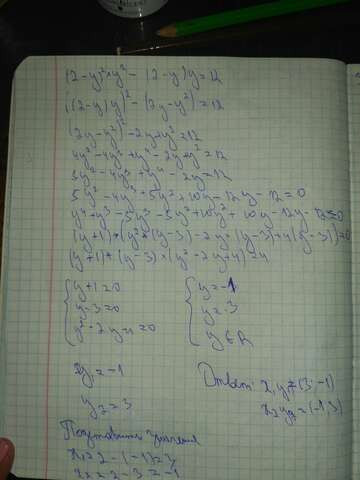 (2-y)²*y² - (2-y)y=12
((2-y)y)² - (2y-y²)=12
(2y-y²)² - 2y+y²=12
4y² - 4y³ + y⁴ - 2y + y² = 12
5y² - 4y³ + y⁴ - 2y = 12
5y² - 4y³ + 5y² + 10y - 12y - 12 = 0
y⁴ + y³ - 5y³ - 5y² + 10y² + 10y - 12y - 12 = 0
(y+1)*(y²*(y-3) - 2y*(y-3)+4(y-3))=0
(y+1)*(y-3)*(y²-2y+4)=4
y+1=0
y-3=0
y²-2y+4=0
y=-1
y=3
y∈R
y₁=-1
y₂=3
Ответ: x₁y₁=(3;-1)
x₂y₂=(-1;3)
x₁=2-(-1)=3
x₂=2-3=-1